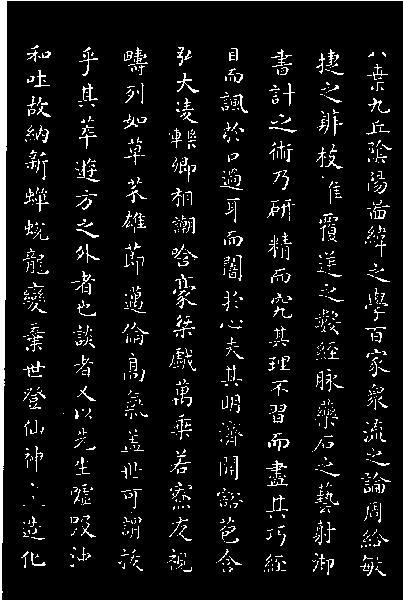 八索九丘陰陽啚緯之學百家衆流之論周給敏
捷之辯枝離覆逆之數經脉藥石之藝射御
書計之術乃研精而究其理不習而盡其巧經
目而諷於口過耳而闇於心夫其明濟開豁苞含
弘大凌轢卿相謿哈豪桀戲萬乘若寮友視
疇列如草芥雄節邁倫高氣盖世可謂拔
乎其萃遊方之外者也談者又以先生噓吸沖
和吐故納新蟬蛻龍變棄世登仙神交造化